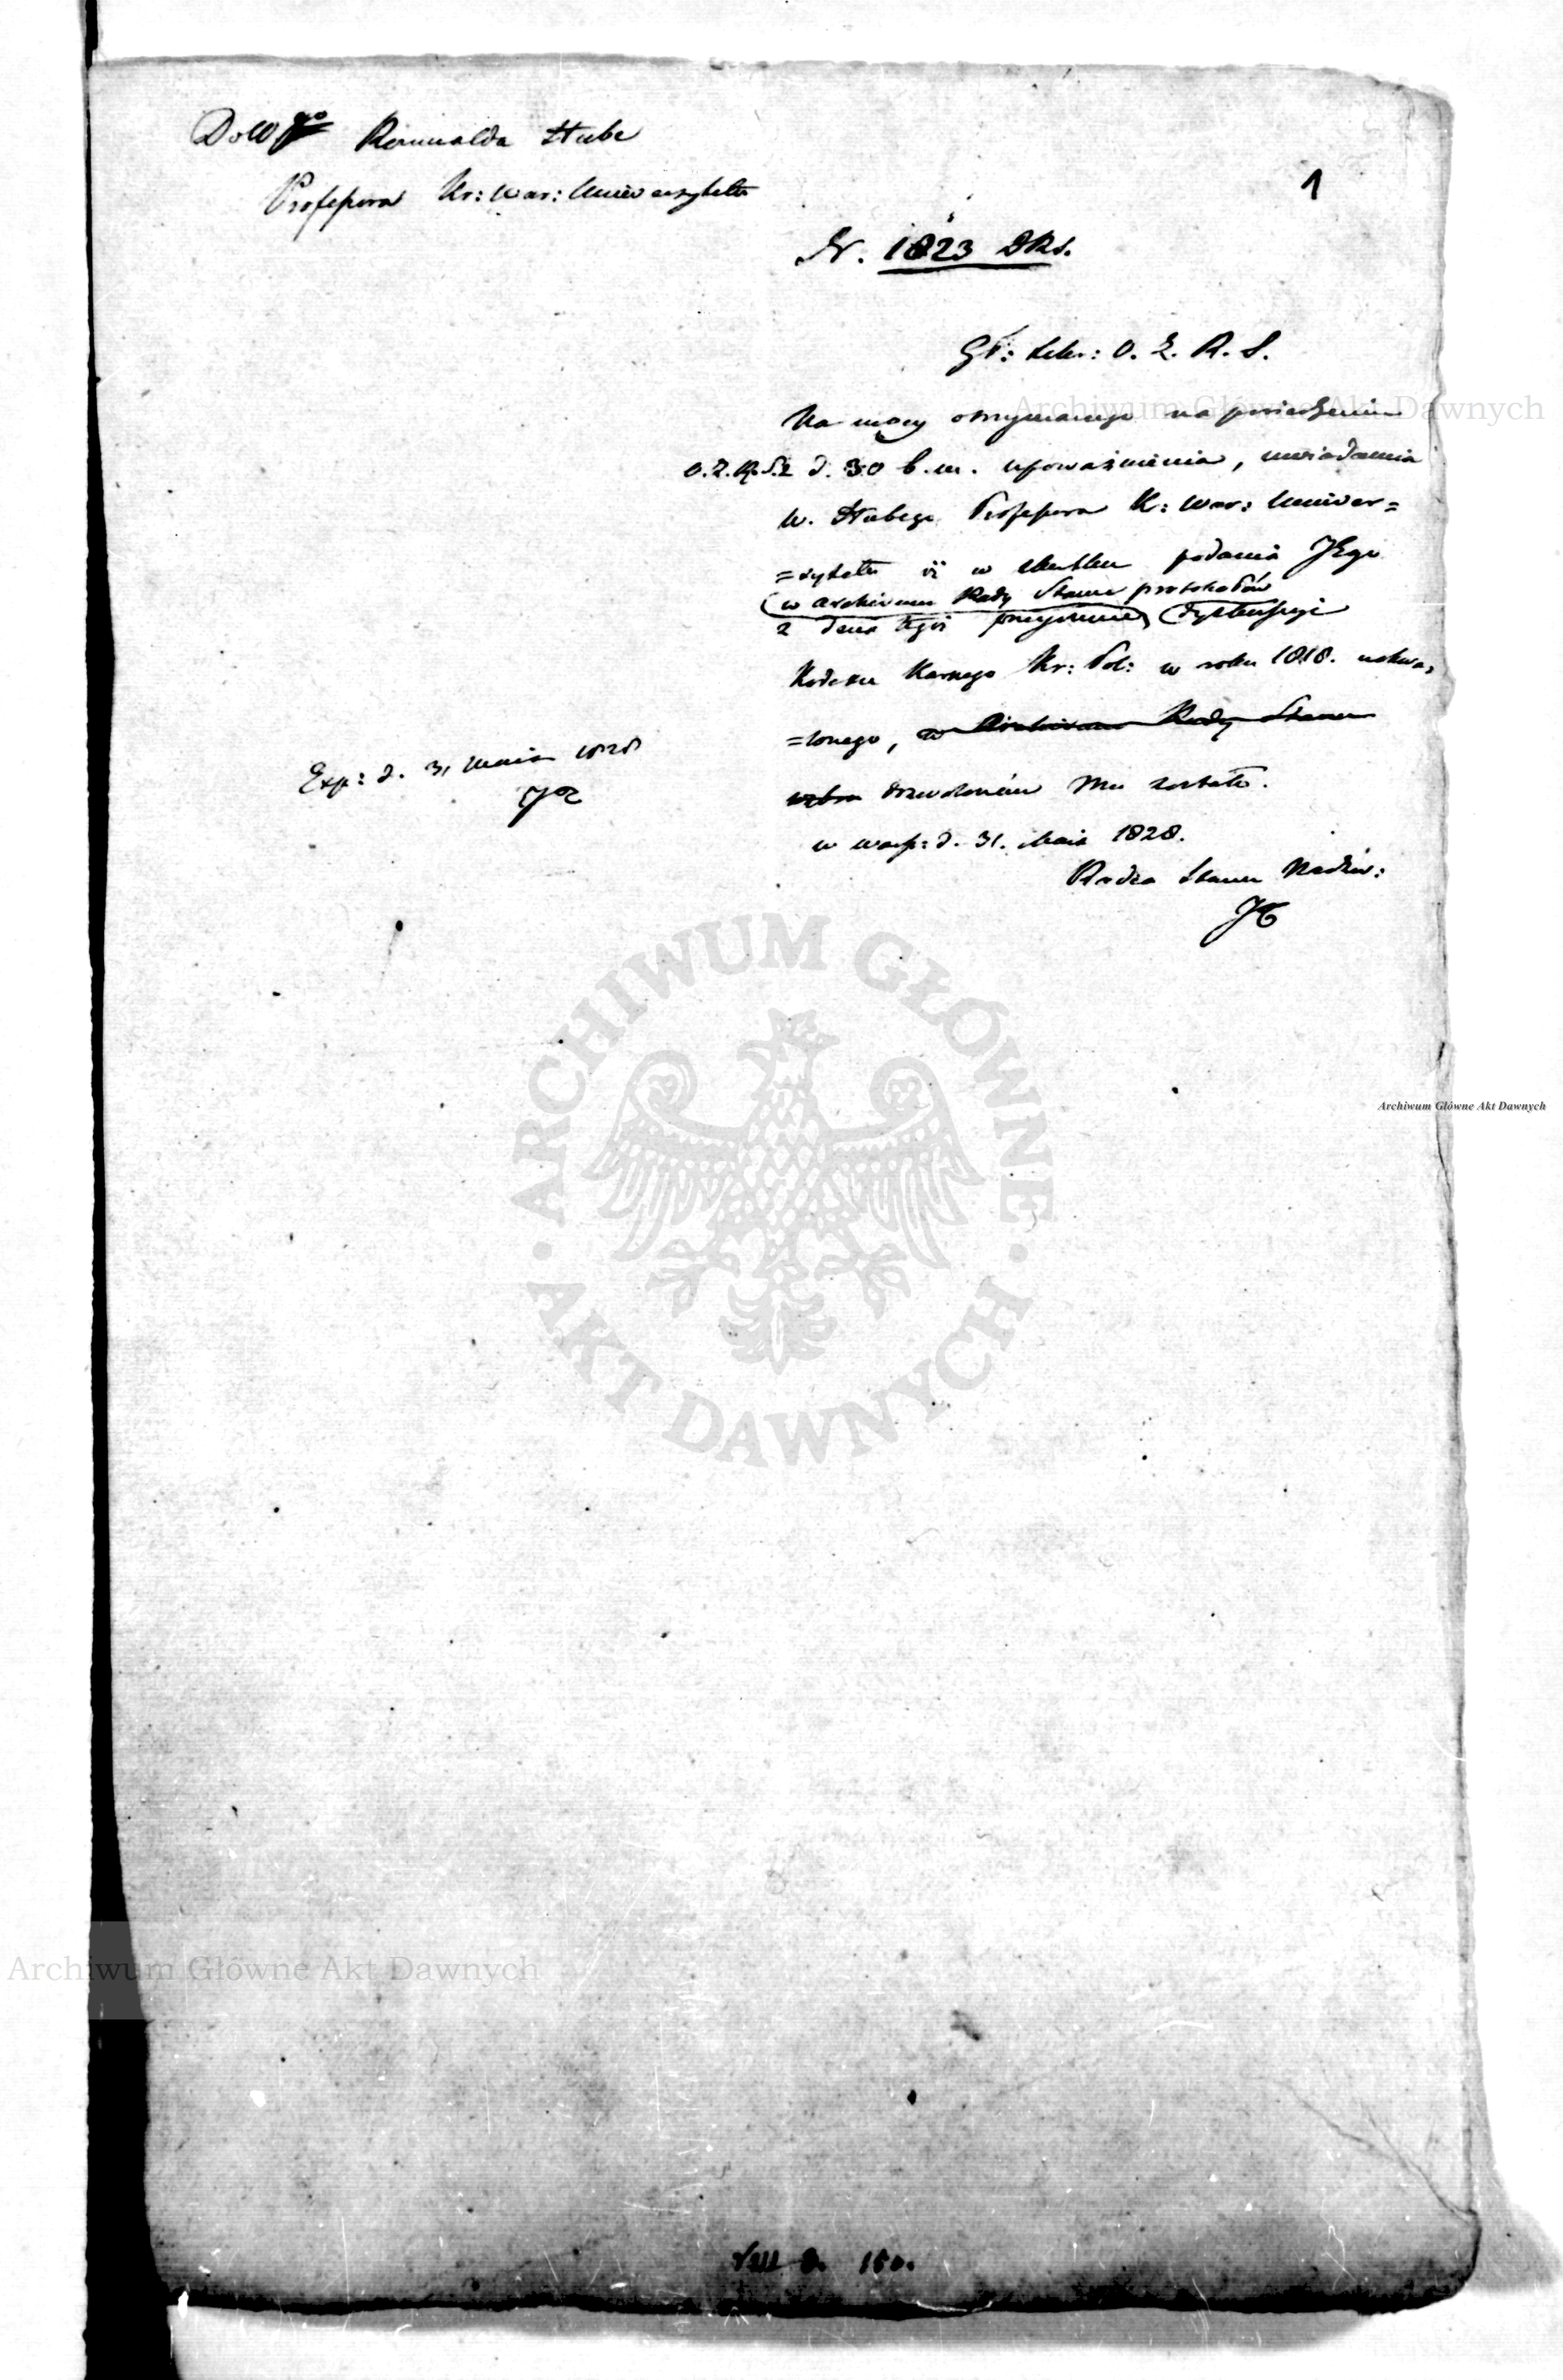 Do W go Romualda Hube
Professora Kr: War: Uniwersytetu
1
N. 1823 DRS.
Gł: Sekr: O. Z. R. S.
Na mocy otrzymanego na posiedzeniu
O. Z. R. S. z d. 30 b. m. upoważnienia, uwiadamia
W. Hubego Professora K: War: Uniwer=
=sytetu iż w skutku podania JEgo
w Archiwum Rady Stanu protokołów
z dnia tegoż przejrzenie dyskussyi
Kodexu Karnego Kr: Pol: w roku 1818. uchwa=
=lonego, w Archiwum Rady Stanu
dozwolonem Mu zostało.
w Warsz: d. 31. Maia 1828.
Radca Stanu Nadzw:
JT
Exp: d. 31 Maia 1828
VIII d. 150.
Archiwum Główne Akt Dawnych
Archiwum Główne Akt Dawnych
ARCHIWUM GŁÓWNE · AKT DAWNYCH ·
Archiwum Główne Akt Dawnych